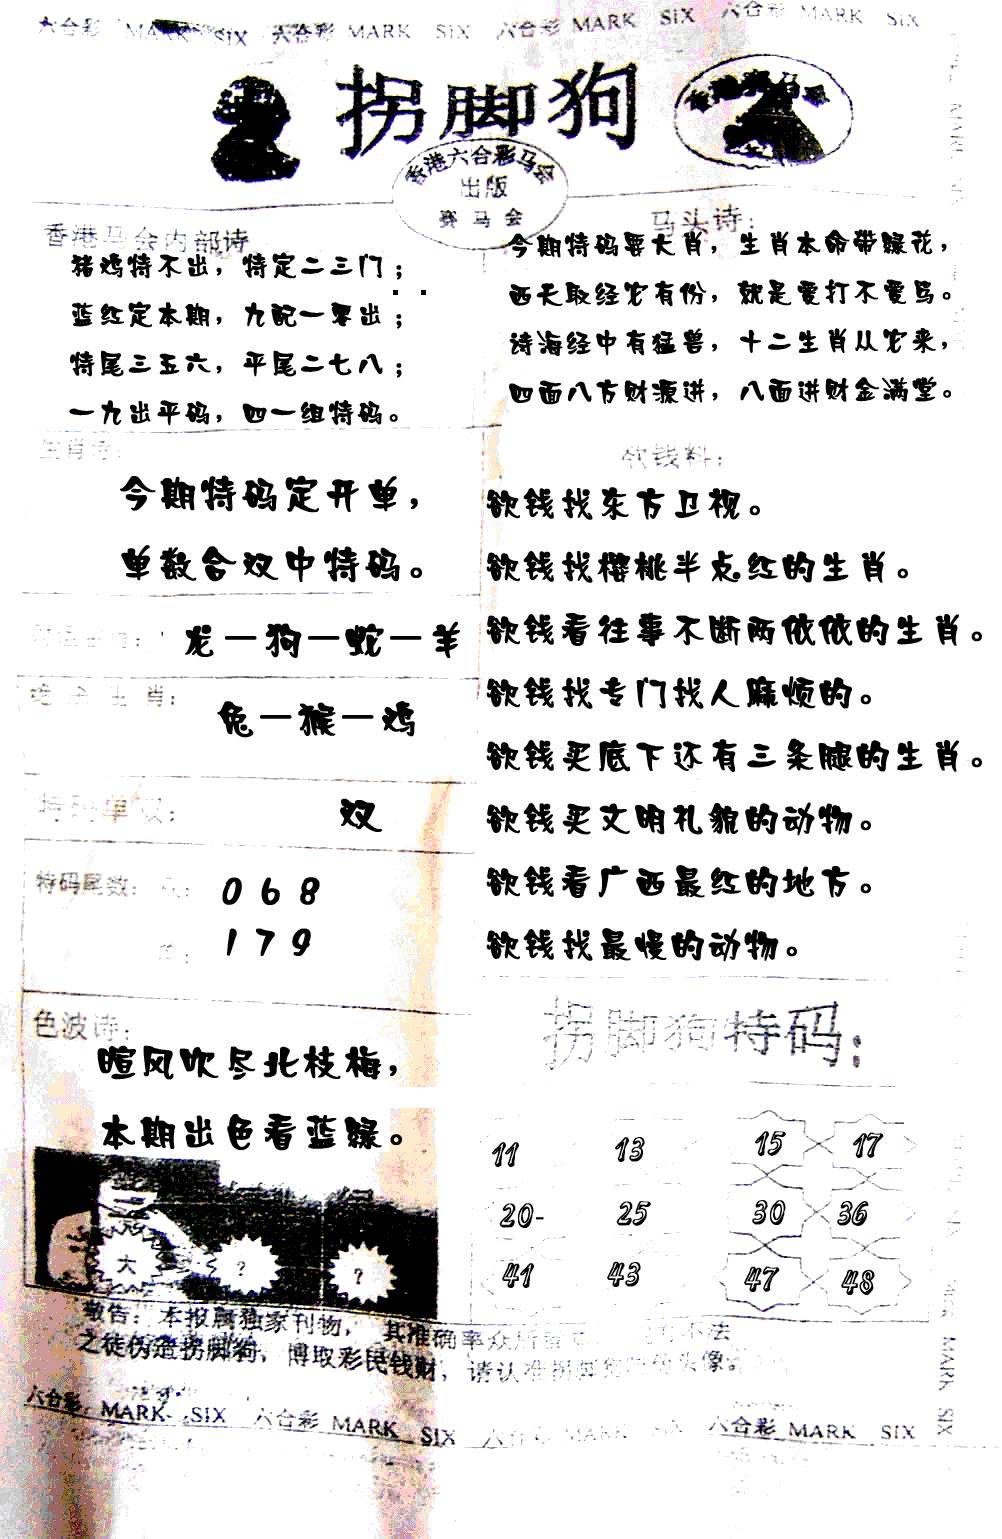 六合彩 MARK SIX 六合彩 MARK SIX 六合彩 MARK SIX 六合彩 MARK SIX
拐脚狗
香港六合彩马会
出版
赛马会
香港马会内部诗
猪鸡特不出，特定二三门；
蓝红定本期，九配一零出；
特尾三五六，平尾二七八；
一九出平码，四一组特码。
马头诗：
今期特码要大肖，生肖本命带绿花，
西天取经它有份，就是爱打不爱骂。
诗海经中有猛兽，十二生肖从它来，
四面八方财源进，八面进财金满堂。
生肖诗：
今期特码定开单，
单数合双中特码。
龙一狗一蛇一羊
生肖：
兔一猴一鸡
特码单双：
双
特码尾数：
0 6 8
1 7 9
色波诗：
暄风吹尽北枝梅，
本期出色看蓝绿。
大
?
?
欲钱料：
欲钱找东方卫视。
欲钱找樱桃半点红的生肖。
欲钱看往事不断两依依的生肖。
欲钱找专门找人麻烦的。
欲钱买底下还有三条腿的生肖。
欲钱买文明礼貌的动物。
欲钱看广西最红的地方。
欲钱找最慢的动物。
拐脚狗特码：
11 13 15 17
20- 25 30 36
41 43 47 48
敬告：本报属独家刊物，其准确率众所 不法
之徒伪造拐脚狗，博取彩民钱财，请认准拐脚 头像。
六合彩 MARK SIX 六合彩 MARK SIX 六合彩 MARK SIX 六合彩 MARK SIX
MARK SIX